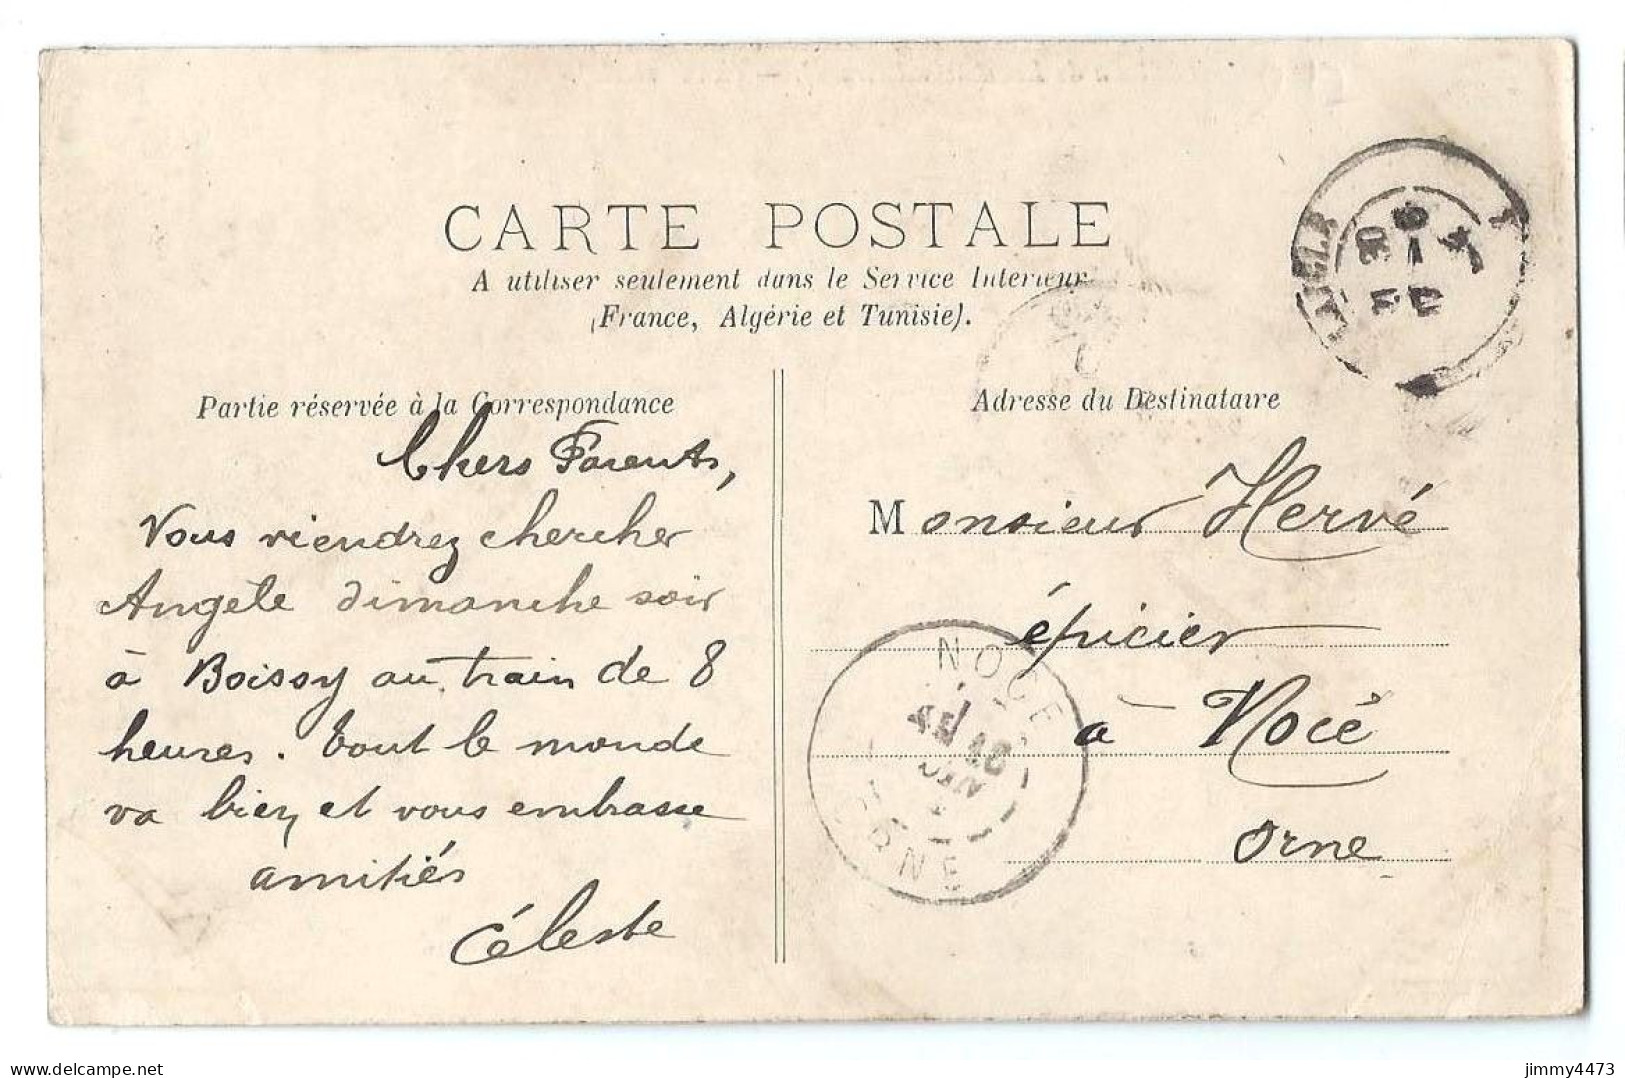 CARTE POSTALE
A utiliser seulement dans le Service Intérieur
(France, Algérie et Tunisie).
Partie réservée à la Correspondance
Chers Parents,
Vous viendrez chercher
Angèle dimanche soir
à Boissy au train de 8
heures. tout le monde
va bien et vous embrasse
amitiés
Céleste
Adresse du Destinataire
Monsieur Hervé
épicier
à Nocé
Orne
LAIGLE
NOCE
ORNE
delcampe.net
jimmy4473